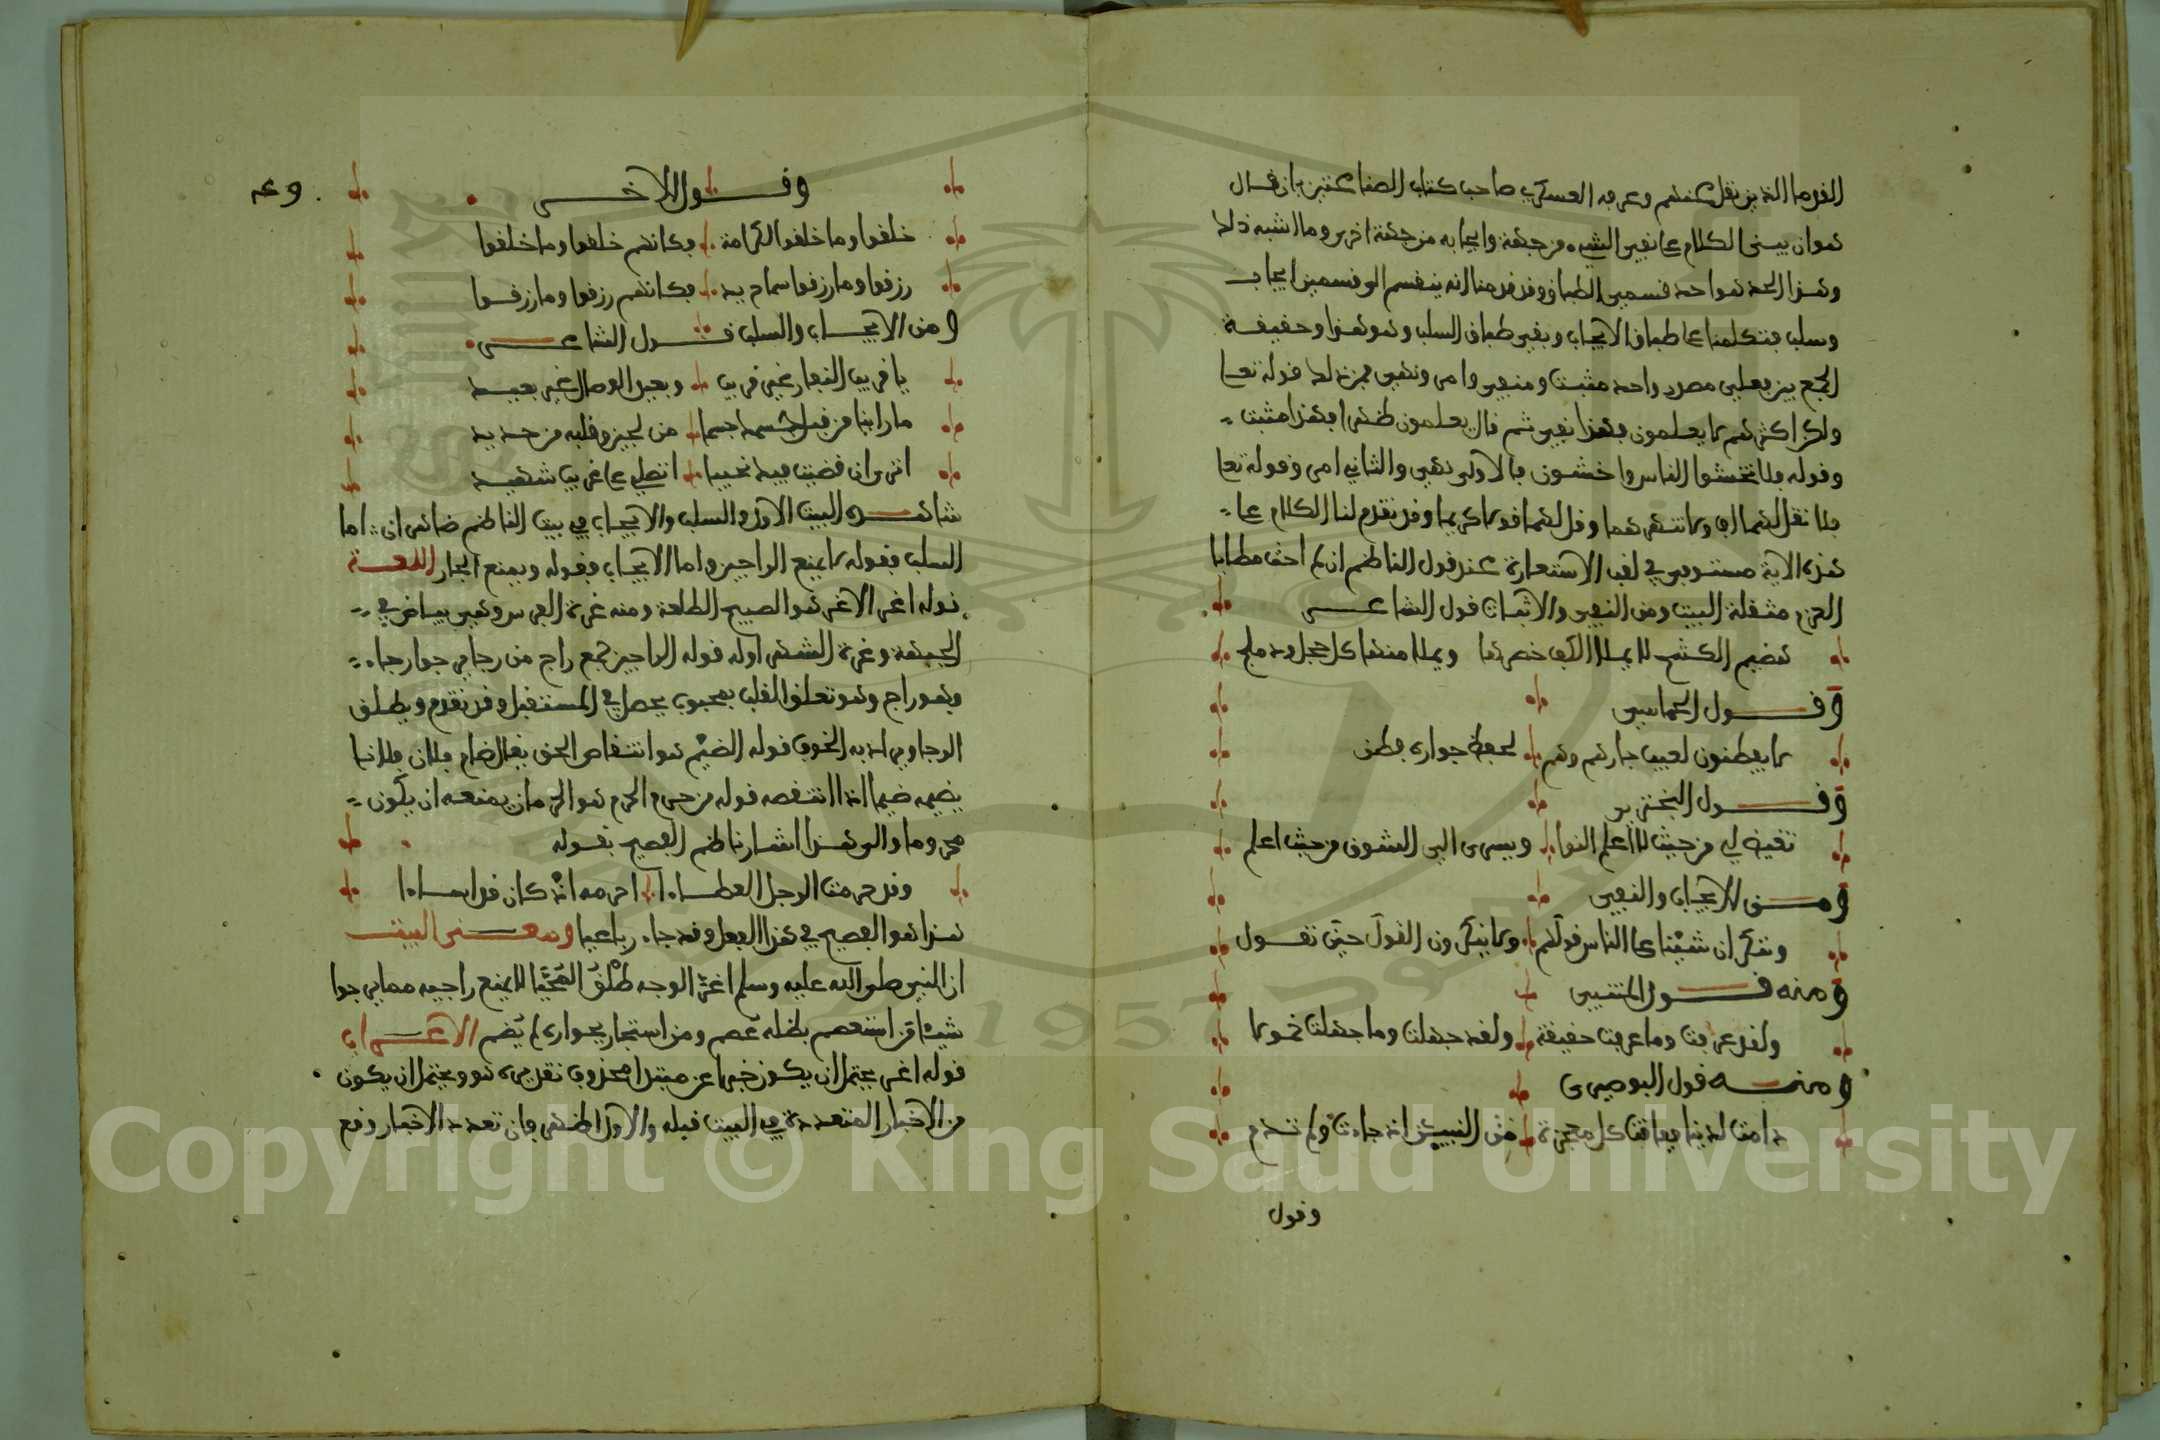 القوم الذين نقل عنهم وعرفه العسكري صاحب كتاب الصناعتين بان قال
هو ان يبنى الكلام على نفي الشيء من جهة وايجابه من جهة اخرى وما اشبه ذلك
وهذا الحد هو احد قسمي الطباق وقد قدمنا انه ينقسم الى قسمين ايجاب
وسلب فتكلمنا على طباق الايجاب وبقي طباق السلب وهو هذا وحقيقة
الجمع بين فعلي مصدر واحد مثبت ومنفي وامر ونهي فمن ذلك قوله تعا
ولكن اكثرهم لا يعلمون فهذا نفي ثم قال يعلمون ظاهرا فهذا مثبت
وقوله فلا تخشوا الناس واخشون فالاولى نهي والثاني امر وقوله تعا
فلا تقل لهما اف ولا تنهرهما وقل لهما قولا كريما وقد تقدم لنا الكلام على
هذه الاية مستوفى في لقب الاستعارة عند قول الناظم ان لم احث مطايا
العزم مثقلة البيت ومن النفي والاثبات قول الشاعر
هضيم الكشح لا يملا الكف خصرها ويملا منها كل حجل ودملج
وقول الحماسي
لا يفطنون لعيب جارهم وهم لحفظ جواره فطن
وقول البحتري
تقيض لي من حيث لا اعلم النوا ويسرى الي الشوق من حيث اعلم
ومن الايجاب والنفي
وننكر ان شئنا على الناس قولهم ولا ينكرون القول حين نقول
ومنه قول المتنبي
ولقد عرفت وما عرفت حقيقة ولقد جهلت وما جهلت خمولا
ومنه قول البوصيري
دامت لدينا ففاقت كل معجزة من النبيين اذ جاءت ولم تدم
وقول
وقول الاخر
خلقوا وما خلقوا لمكرمة فكانهم خلقوا وما خلقوا
رزقوا وما رزقوا سماح يد فكانهم رزقوا وما رزقوا
ومن الايجاب والسلب قول الشاعر
يا قريب النفار غير قريب وبعيد الوصال غير بعيد
ما راينا من قبل جسمه جسما من لجين وقلبه من حديد
اترى ان قضيت فيه نحيبا اتصلي على غريب شهيد
شاهده البيت الاول والسلب والايجاب في بيت الناظم ظاهران اما
السلب فقوله لا يمنع الراجين واما الايجاب فقوله ويمنع الجار اللغة
قوله اغر الاغر هو الصبيح الطلعة ومنه غرة الفرس وهي بياض في
الجبهة وغرة الشهر اوله قوله الراجين جمع راج من رجا يرجوا رجاء
فهو راج وهو تعلق القلب بمحبوب يحصل في المستقبل وقد تقدم ويطلق
الرجا ويراد به الخوف قوله الضيم هو انتقاص الحق يقال ضام فلان فلانا
يضيمه ضيما اذا انتقصه قوله من حرم الحرم هو الحرمان يمنعه ان يكون
محروما والى هذا اشار ناظم الفصيح بقوله
وقد حرمت الرجل العطاءا احرمه اذ كان قد اساءا
هذا هو الفصيح في هذا الفعل وقد جاء رباعيا ومعنى البيت
ان النبي صلى الله عليه وسلم اغر الوجه طلق المحيا لا يمنع راجيه مما يرجوا
شيئا من استعصم بظله عصم ومن استجار بجواره لم يضم الاعراب
قوله اغر يحتمل ان يكون خبرا عن مبتدا محذوف تقديره هو ويحتمل ان يكون
من الاخبار المتعددة في البيت قبله والاول اظهر فان تعدد الاخبار وقع